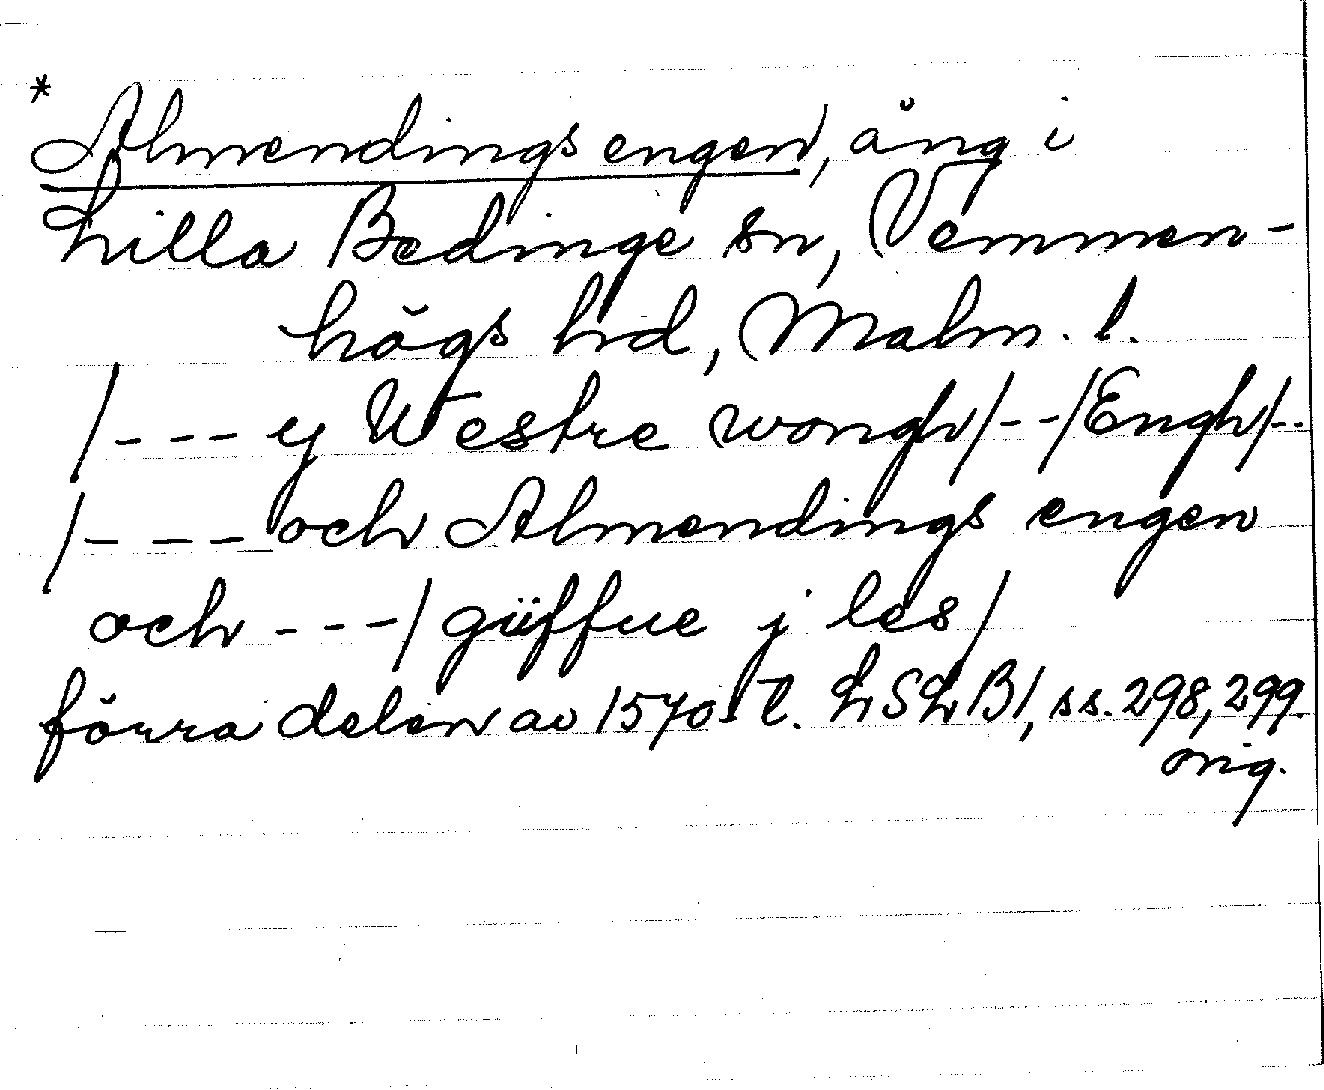 * Almendings engen, äng i
Lilla Bedinge sn, Vemmen-
högs hd, Malm. l.
/--- y Westre wongh/--/Engh/--
/--- och Almendings engen
och ---/ güffue j les/
förra delen av 1570-t. LSLB1, ss. 298, 299.
orig.